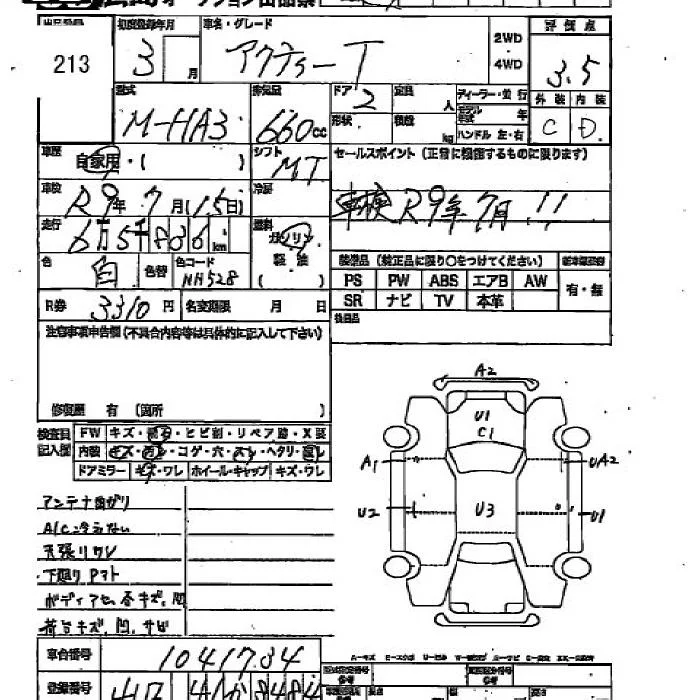 オークション出品票
出品番号 初度登録年月 車名・グレード 評価点
213 3月 アクティー T 2WD 4WD 3.5
型式 排気量 ドア 2 定員 人 ディーラー・並行 外装 内装
M-HA3 660cc 形状 積載 kg モデル 年 C D
ハンドル 左・右
車歴 自家用・( ) シフト MT セールスポイント (正常に機能するものに限ります)
車検 R9年7月(15日) 冷房 車検R9年7月!!
走行 6万5千836km 燃料 ガソリン 軽油 ( )
装備品 (純正品に限り○をつけてください)
色 白 色替 色コード NH528 PS PW ABS エアB AW 有・無
R券 3310円 名変期限 月 日 SR ナビ TV 本革
後日品
注意事項申告欄 (不具合内容等は具体的に記入して下さい)
修復歴 有 (箇所 )
検査員記入欄 FW キズ・飛石・ヒビ割・リペア跡・X要
内装 キズ・汚レ・コゲ・穴・スレ・ヘタリ・
ドアミラー キズ・ワレ ホイール・キャップ キズ・ワレ
A2
U1
C1
A1
UA2
U2
U3
U1
アンテナ曲がり
A/C冷えない
天張りワレ
下廻りPマト
ボディアセ、各キズ、凹
荷台キズ、凹、サビ
車台番号 1041784
登録番号